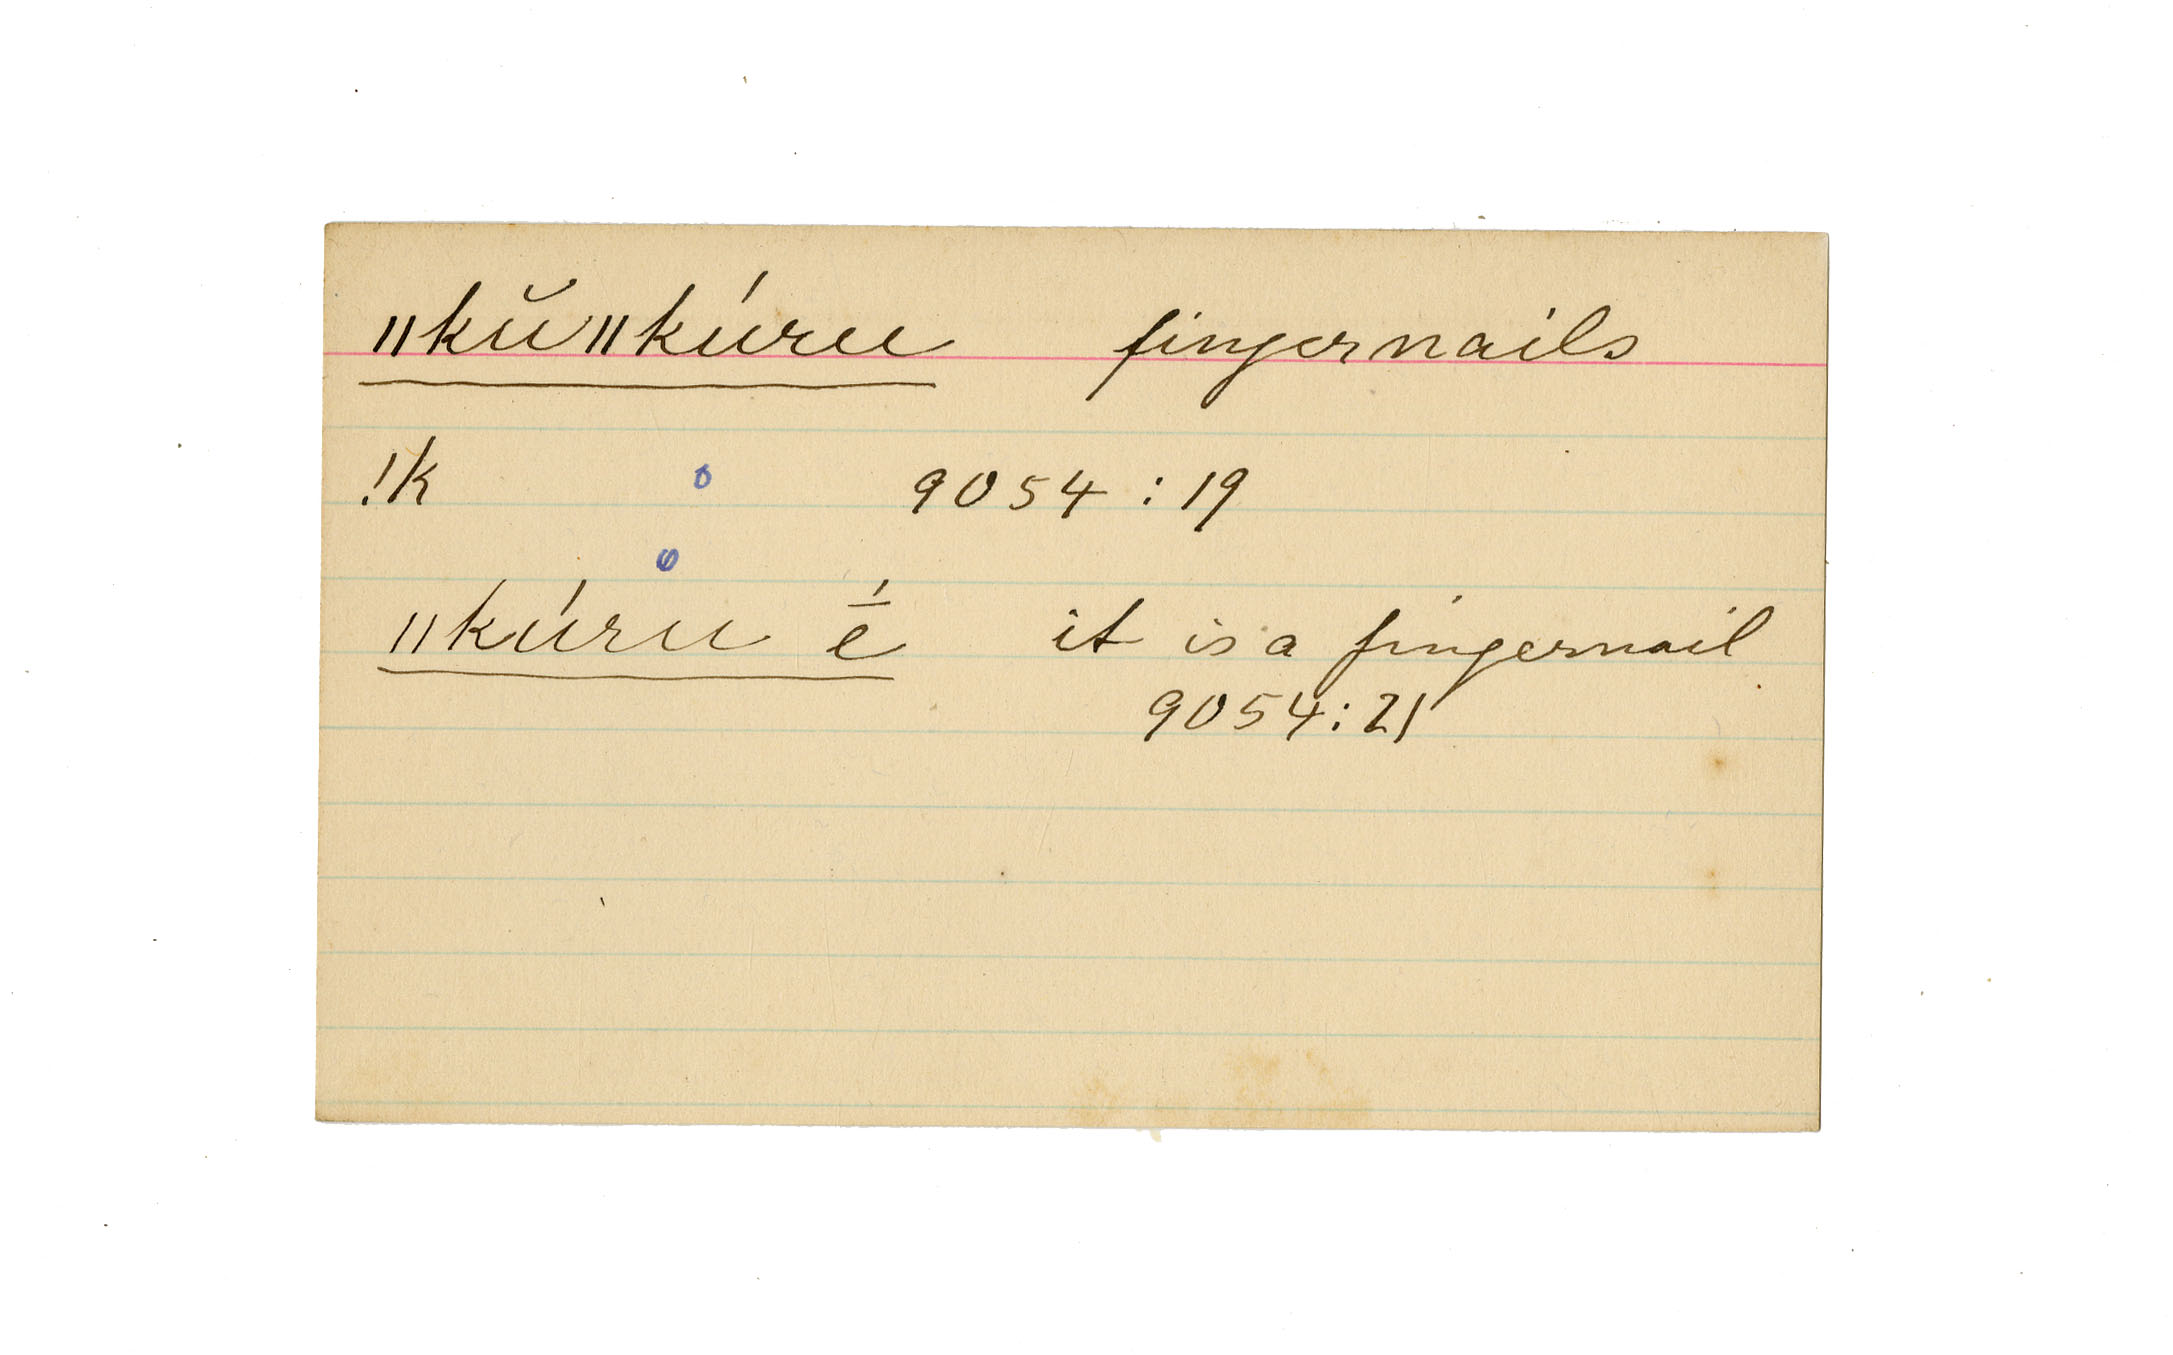 ǁkŭǁkúru fingernails
!k o 9054 : 19
o
ǁkúru é̄ it is a fingernail
9054 : 21